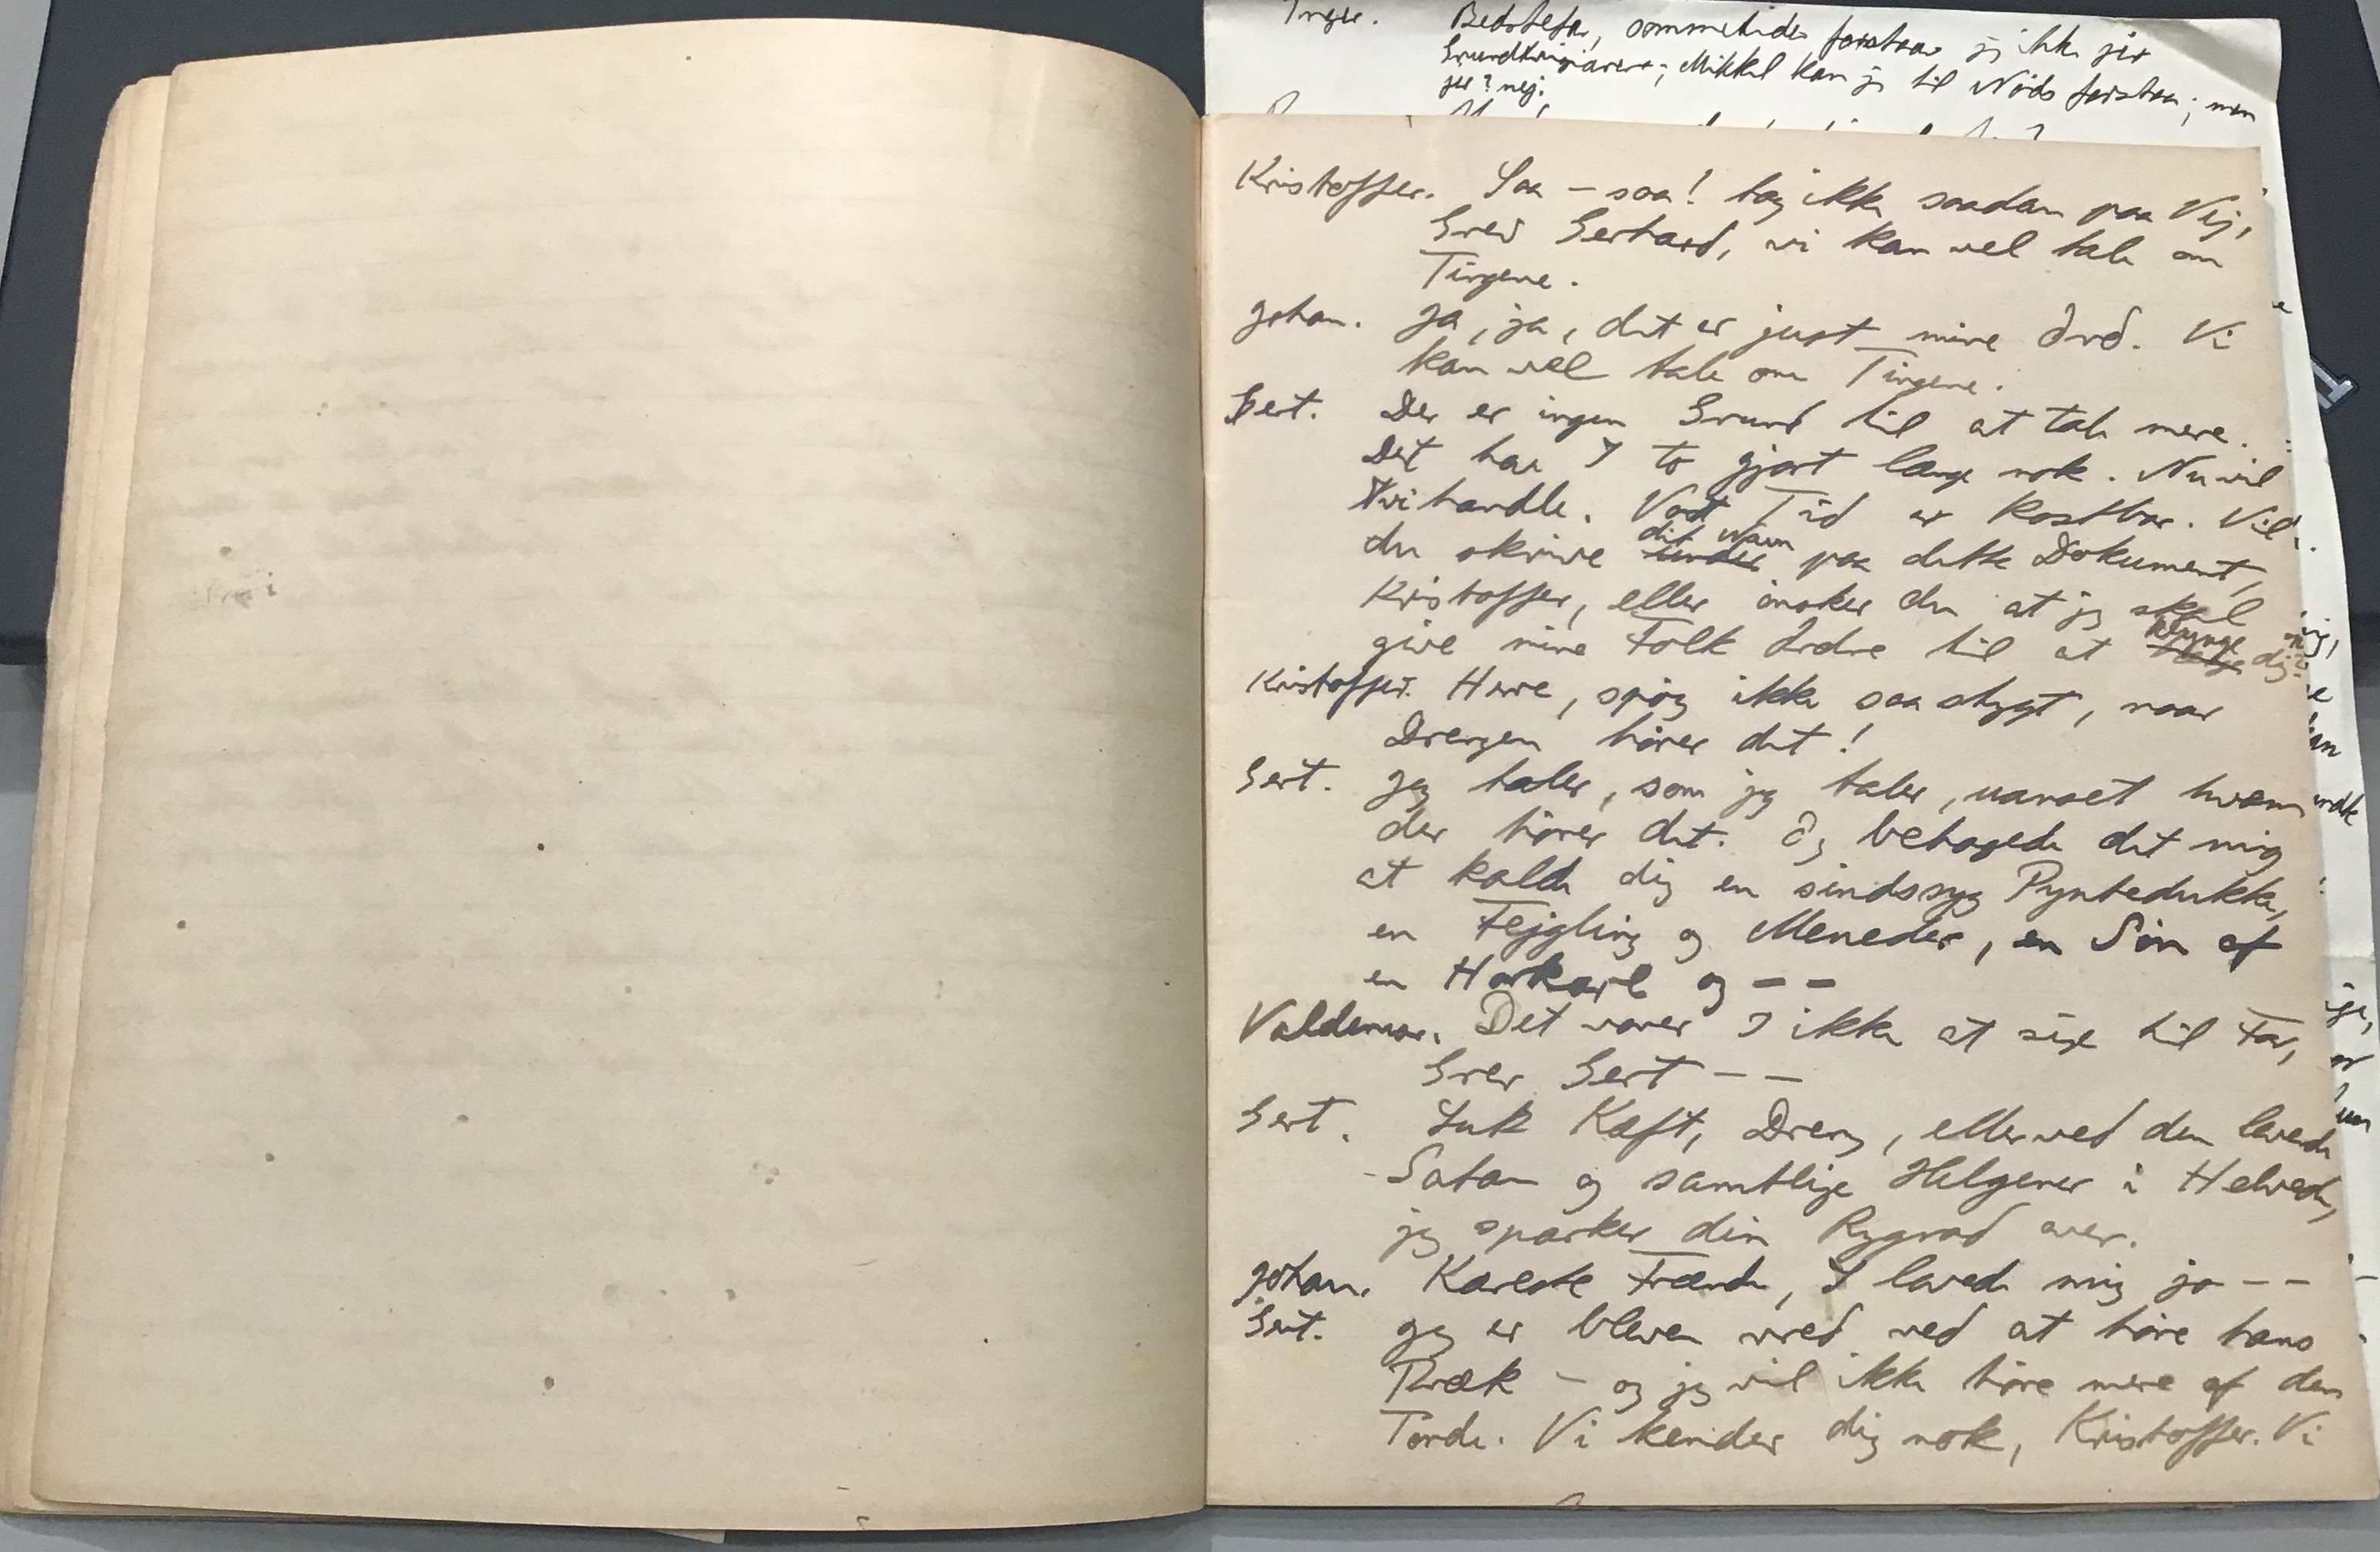 Inger. Bedstefar, sommetider forstaar jeg ikke jer
Grundtvigianere; Mikkel kan jeg til Nöds forstaa; men
jer? nej.
Kristoffer. Saa – saa! tag ikke saadan paa Vej,
Grev Gerhard, vi kan vel tale om
Tingene.
Johan. Ja, ja, det er just mine Ord. Vi
kan vel tale om Tingene.
Gert. Der er ingen Grund til at tale mere.
Det har I to gjort længe nok. Nu vil
vi handle. Vort Tid er kostbar. Vil
du skrive under dit Navn paa dette Dokument,
Kristoffer, eller önsker du at jeg skal
give mine Folk Ordre til at klynge dig op?
Kristoffer. Herre, spög ikke saa stygt, naar
Drengen hörer det!
Gert. Jeg taler, som jeg taler, uanset hvem
der hörer det. Og behagede det mig
at kalde dig en sindssyg Pyntedukke,
en Fejgling og Meneder, en Sön af
en Horkarl og – –
Valdemar. Det vover I ikke at sige til Far,
Grev Gert – –
Gert. Luk Kæft, Dreng, eller ved den levende
Satan og samtlige Helgener i Helvede,
jeg sparker din Rygrad over.
Johan. Kæreste Frænde, I loved mig jo – –
Gert. Jeg er bleven vred ved at höre hans
Præk – og jeg vil ikke höre mere af den
Torden. Vi kender dig nok, Kristoffer. Vi